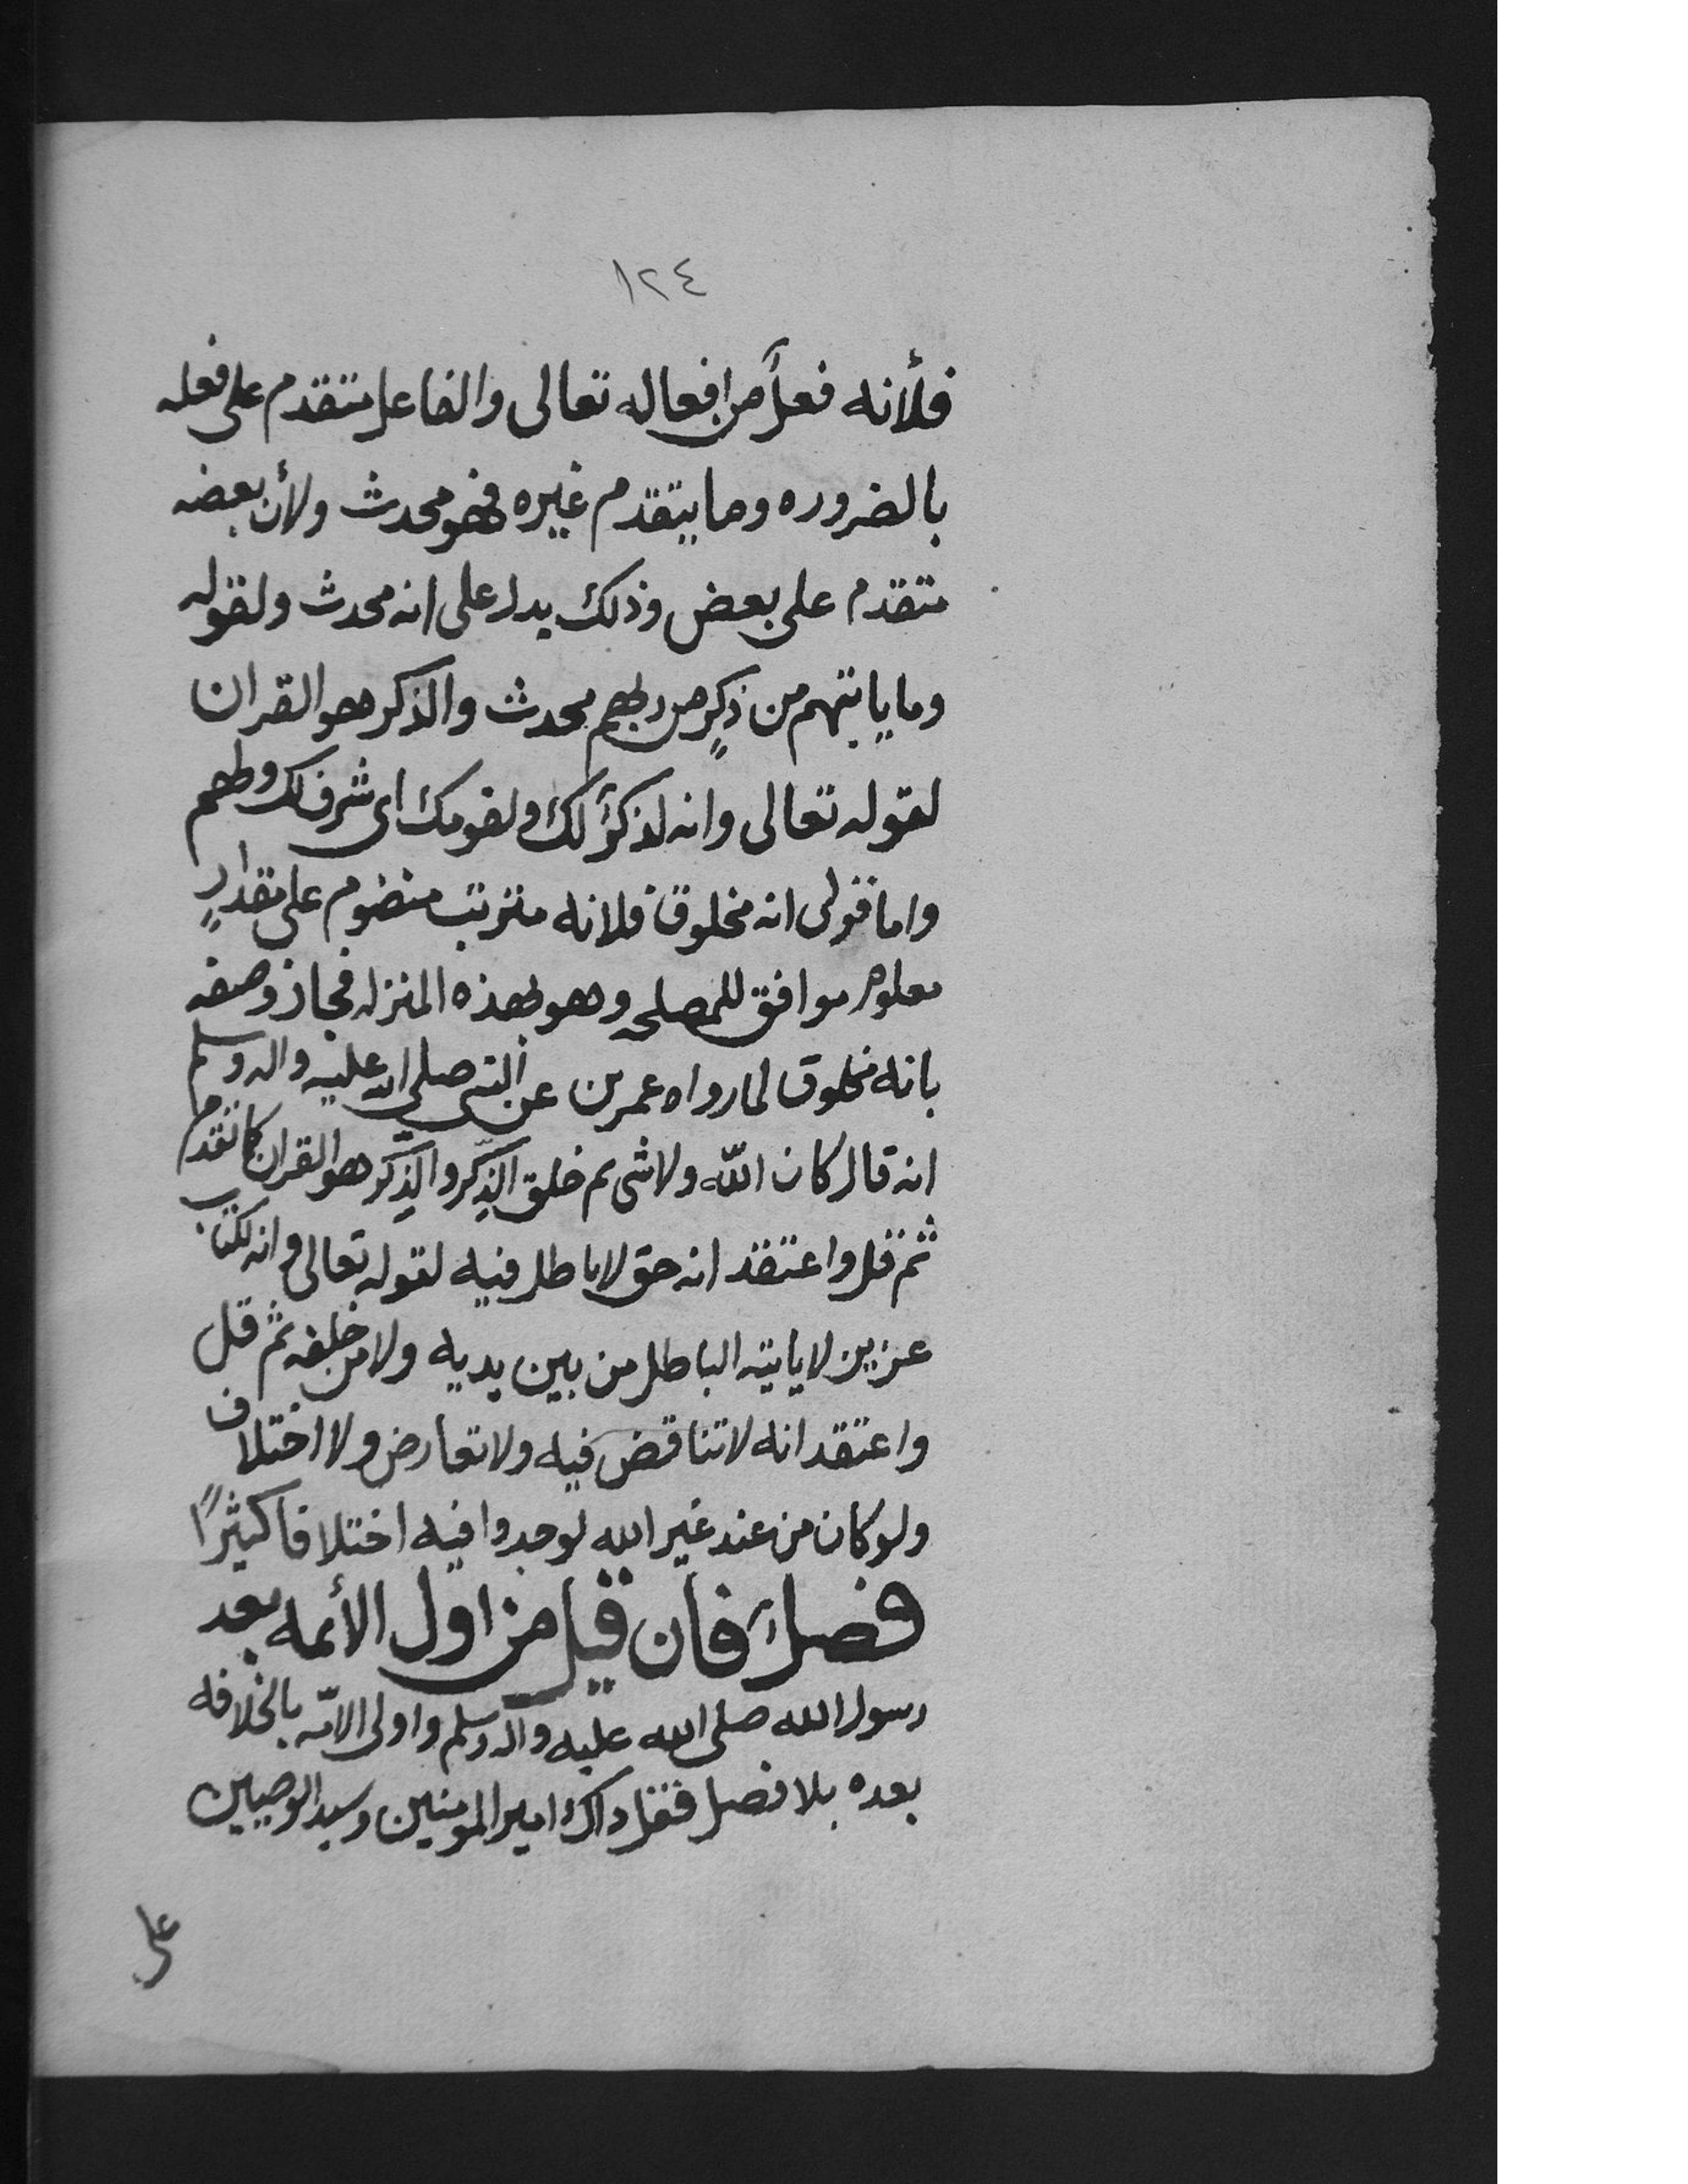 ١٢٤
فلأنه فعلاً من افعاله تعالى والفاعل متقدم على فعله
بالضروره وما يتقدم غيره فهو محدث ولأن بعضه
متقدم على بعض وذلك يدل على انه محدث ولقوله
وما ياتيهم من ذكرٍ من ربهم محدث والذكر هو القران
لقوله تعالى وانه لذكرٌ لك ولقومك اى شرف لك ولهم
واما قولى انه مخلوق فلانه مترتب منضوم على مقدارٍ
معلوم موافق للمصلحه وهو بهذه المنزله فجاز وصفه
بانه مخلوق لما رواه عمر بن عن النبى صلى الله عليه واله وسلم
انه قال كان الله ولا شى ثم خلق الذِّكر والذِّكر هو القران كما تقدم
ثم قل واعتقد انه حق لا باطل فيه لقوله تعالى وانه لكتاب
عزيز لا ياتيه الباطل من بين يديه ولا من خلفه ثم قل
واعتقد انه لا تناقض فيه ولا تعارض ولا اختلاف
ولو كان من عند غير الله لوجدوا فيه اختلافا كثيرًا
فصلٌ فان قيل من اول الأئمه بعد
رسول الله صلى الله عليه واله وسلم واولى الامّه بالخلافه
بعده بلا فصل فقل ذاك امير المومنين وسيد الوصيين
على